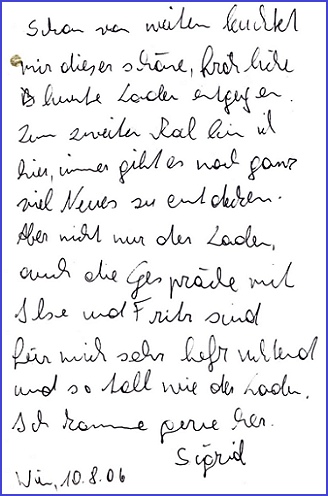 Schon von weiten leuchtet
mir dieser schöne, fröhliche
bunte Laden entgegen.
Zum zweiten Mal bin ich
hier, immer gibt es noch ganz
viel Neues zu entdecken.
Aber nicht nur der Laden,
auch die Gespräche mit
Ilse und Fritz sind
für mich sehr
und so toll wie der Laden.
Ich komme gerne her.
Sigrid
Wien, 10.8.06